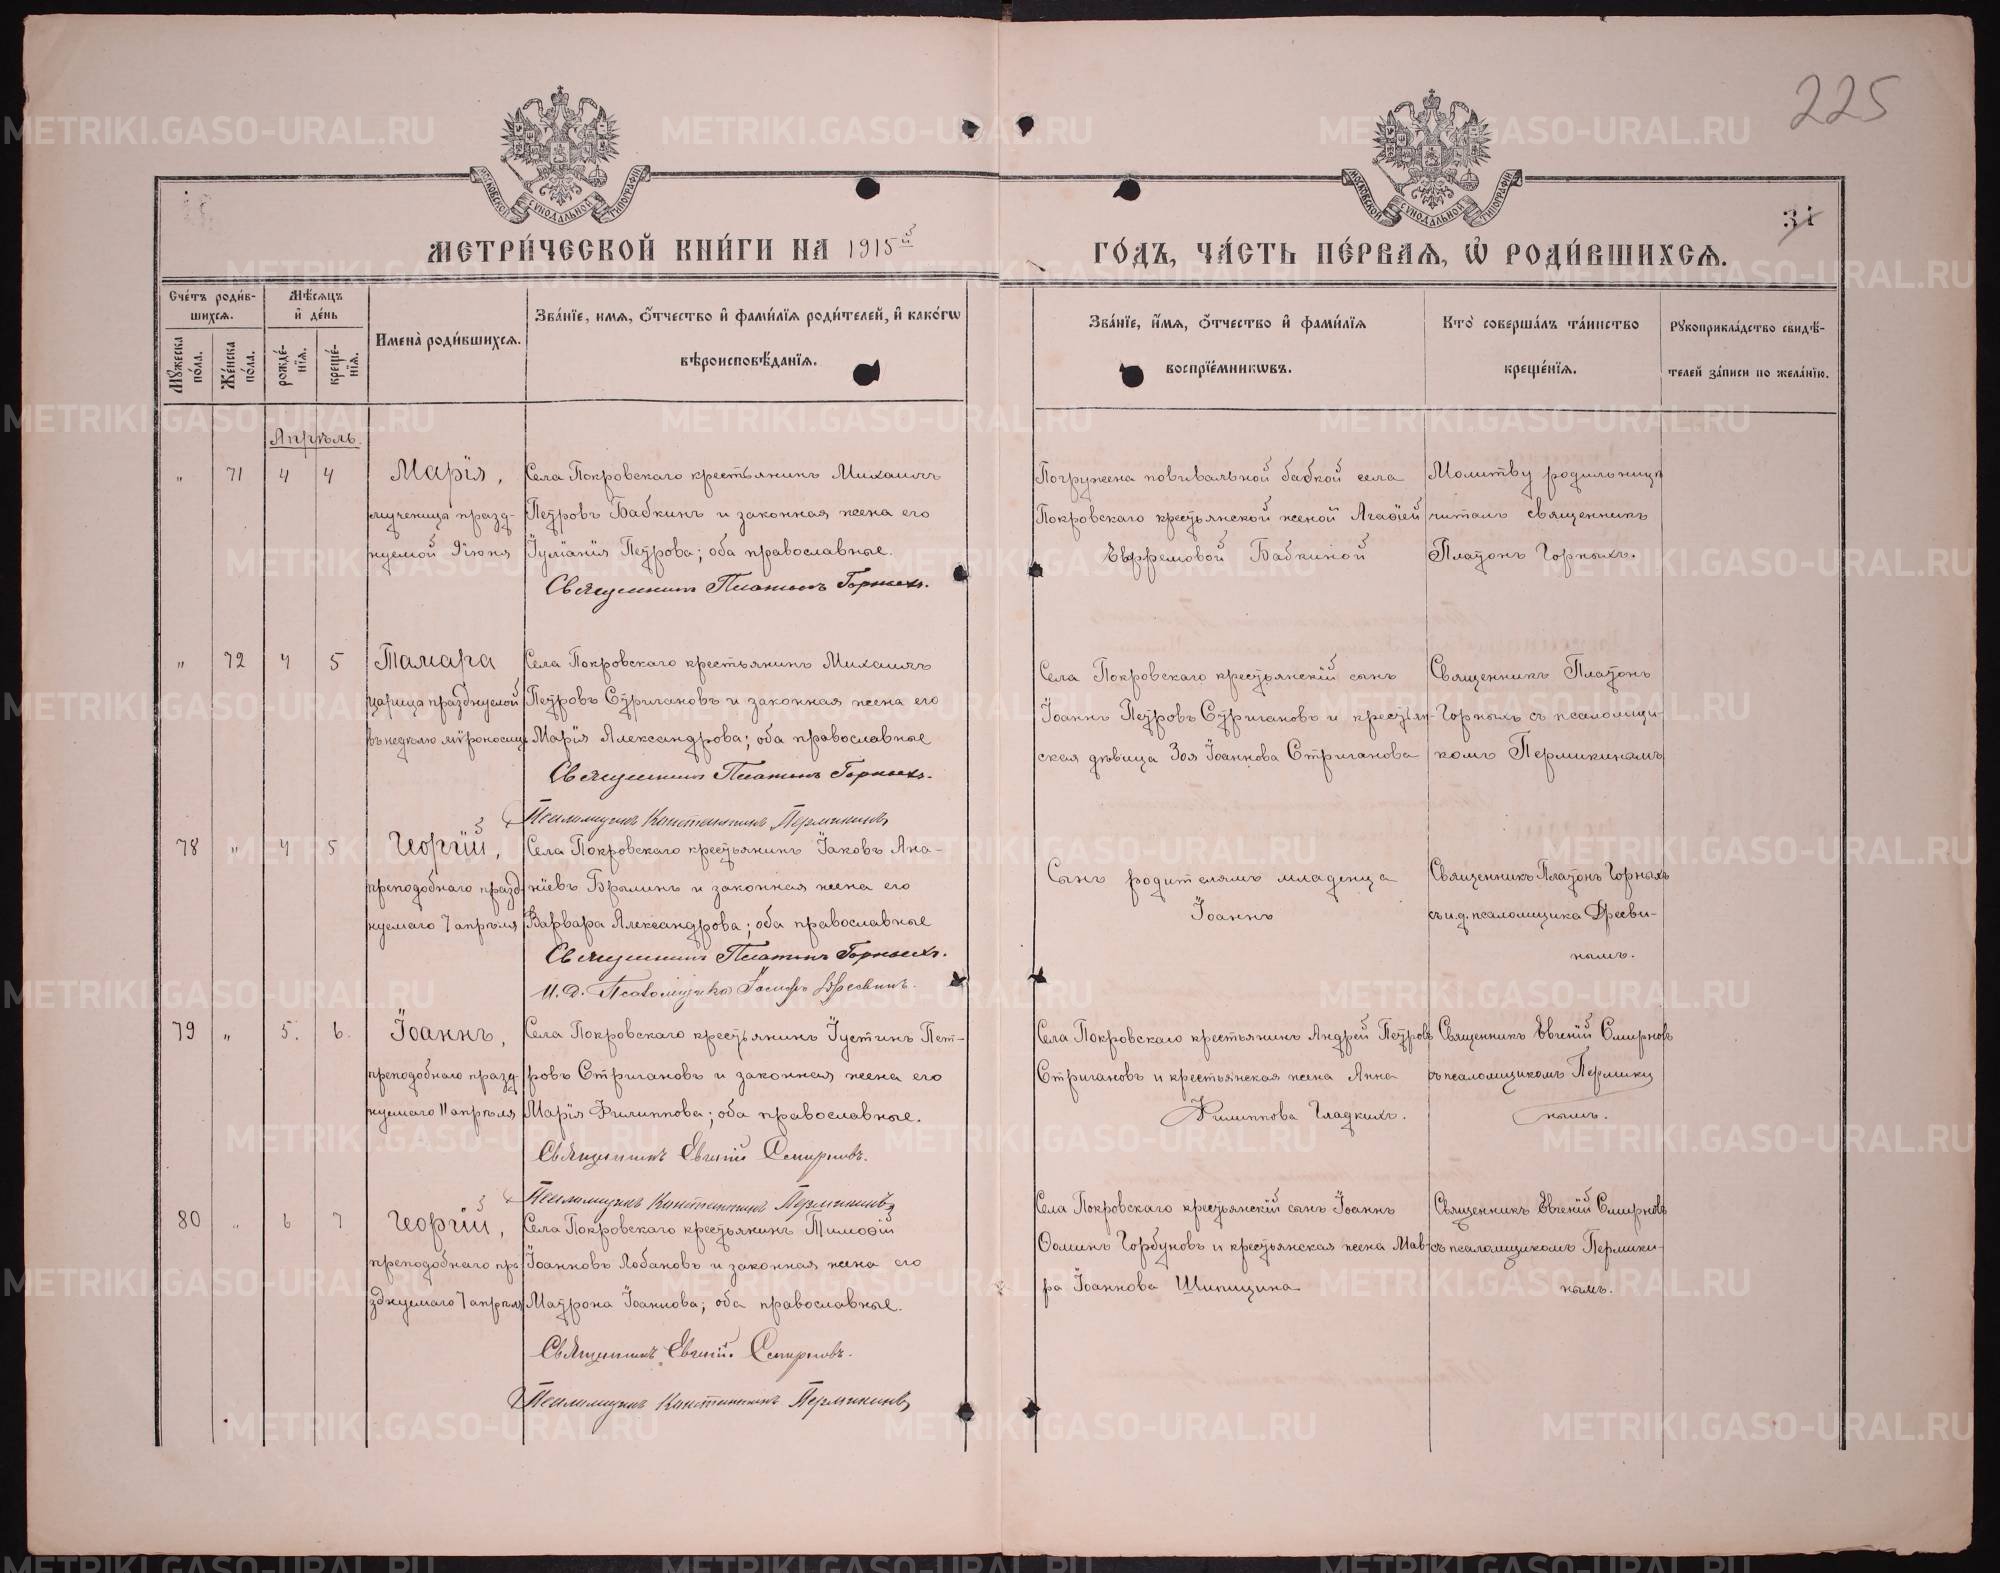 225
МОСКОВСКОЙ СѴНОДАЛЬНОЙ ТИПОГРАФІИ
МОСКОВСКОЙ СѴНОДАЛЬНОЙ ТИПОГРАФІИ
31
МЕТРИ́ЧЕСКОЙ КНИ́ГИ НА 1915й ГО́ДЪ, ЧА́СТЬ ПЕ́РВАЯ, Ѽ РОДИ́ВШИХСѦ.
Сче́тъ роди́в-
шихсѧ.
Мꙋжеска по́ла.
Же́нска по́ла.
Мѣ́сѧцъ и҆ де́нь
рожде́нїѧ.
креще́нїѧ.
И҆мена̀ роди́вшихсѧ.
Зва́нїе, и҆́мѧ, ѻ҆́тчество и҆ фами́лїѧ роди́телей, и҆ како́гѡ
вѣроисповѣ́данїѧ.
Зва́нїе, и҆́мѧ, ѻ҆́тчество и҆ фами́лїѧ
воспрїе́мникѡвъ.
Кто̀ соверша́лъ та́инство
креще́нїѧ.
Рꙋкоприкла́дство свидѣ́-
телей за́писи по жела́нїю.
Апрѣль.
" 71 4 4
Марія,
мученица празд-
нуемой 9 іюня
Села Покровскаго крестьянинъ Михаилъ
Петровъ Бабкинъ и законная жена его
Іуліанія Петрова; оба православные.
Священникъ Платонъ Горныхъ.
Погружена повивальной бабкой села
Покровскаго крестьянской женой Агафіей
Евфремовой Бабкиной
Молитву родильницѣ
читалъ священникъ
Платонъ Горныхъ.
" 72 4 5
Тамара
царица празднуемой
въ недѣлю мѵроносицъ
Села Покровскаго крестьянинъ Михаилъ
Петровъ Стригановъ и законная жена его
Марія Александрова; оба православные
Священникъ Платонъ Горныхъ.
Псаломщикъ Константинъ Пермикинъ
Села Покровскаго крестьянскій сынъ
Іоаннъ Петровъ Стригановъ и крестьян-
ская дѣвица Зоя Іоаннова Стриганова
Священникъ Платонъ
Горныхъ съ псаломщи-
комъ Пермикинымъ
78 " 4 5
Георгій,
преподобнаго празд-
нуемаго 7 апрѣля
Села Покровскаго крестьянинъ Іаковъ Ана-
ніевъ Брылинъ и законная жена его
Варвара Александрова; оба православные
Священникъ Платонъ Горныхъ.
И. д. Псаломщика Іосифъ Древинъ.
Сынъ родителямъ младенца
Іоаннъ
Священникъ Платонъ Горныхъ
съ и.д. псаломщика Древи-
нымъ.
79 " 5. 6.
Іоаннъ,
преподобнаго празд-
нуемаго 11 апрѣля
Села Покровскаго крестьянинъ Іустинъ Пет-
ровъ Стригановъ и законная жена его
Марія Филиппова; оба православные.
Священникъ Евгеній Смирновъ.
Псаломщикъ Константинъ Пермикинъ
Села Покровскаго крестьянинъ Андрей Петровъ
Стригановъ и крестьянская жена Анна
Филиппова Гладкихъ.
Священникъ Евгеній Смирновъ
съ псаломщикомъ Пермики
нымъ.
80 " 6 7
Георгій,
преподобнаго пра-
зднуемаго 7 апрѣля
Села Покровскаго крестьянинъ Тимоѳій
Іоанновъ Лобановъ и законная жена его
Матрона Іоаннова; оба православные.
Священникъ Евгеній Смирновъ.
Псаломщикъ Константинъ Пермикинъ
Села Покровскаго крестьянскій сынъ Іоаннъ
Ѳоминъ Горбуновъ и крестьянская жена Мав-
ра Іоаннова Шипицина
Священникъ Евгеній Смирновъ
съ псаломщикомъ Пермики-
нымъ.